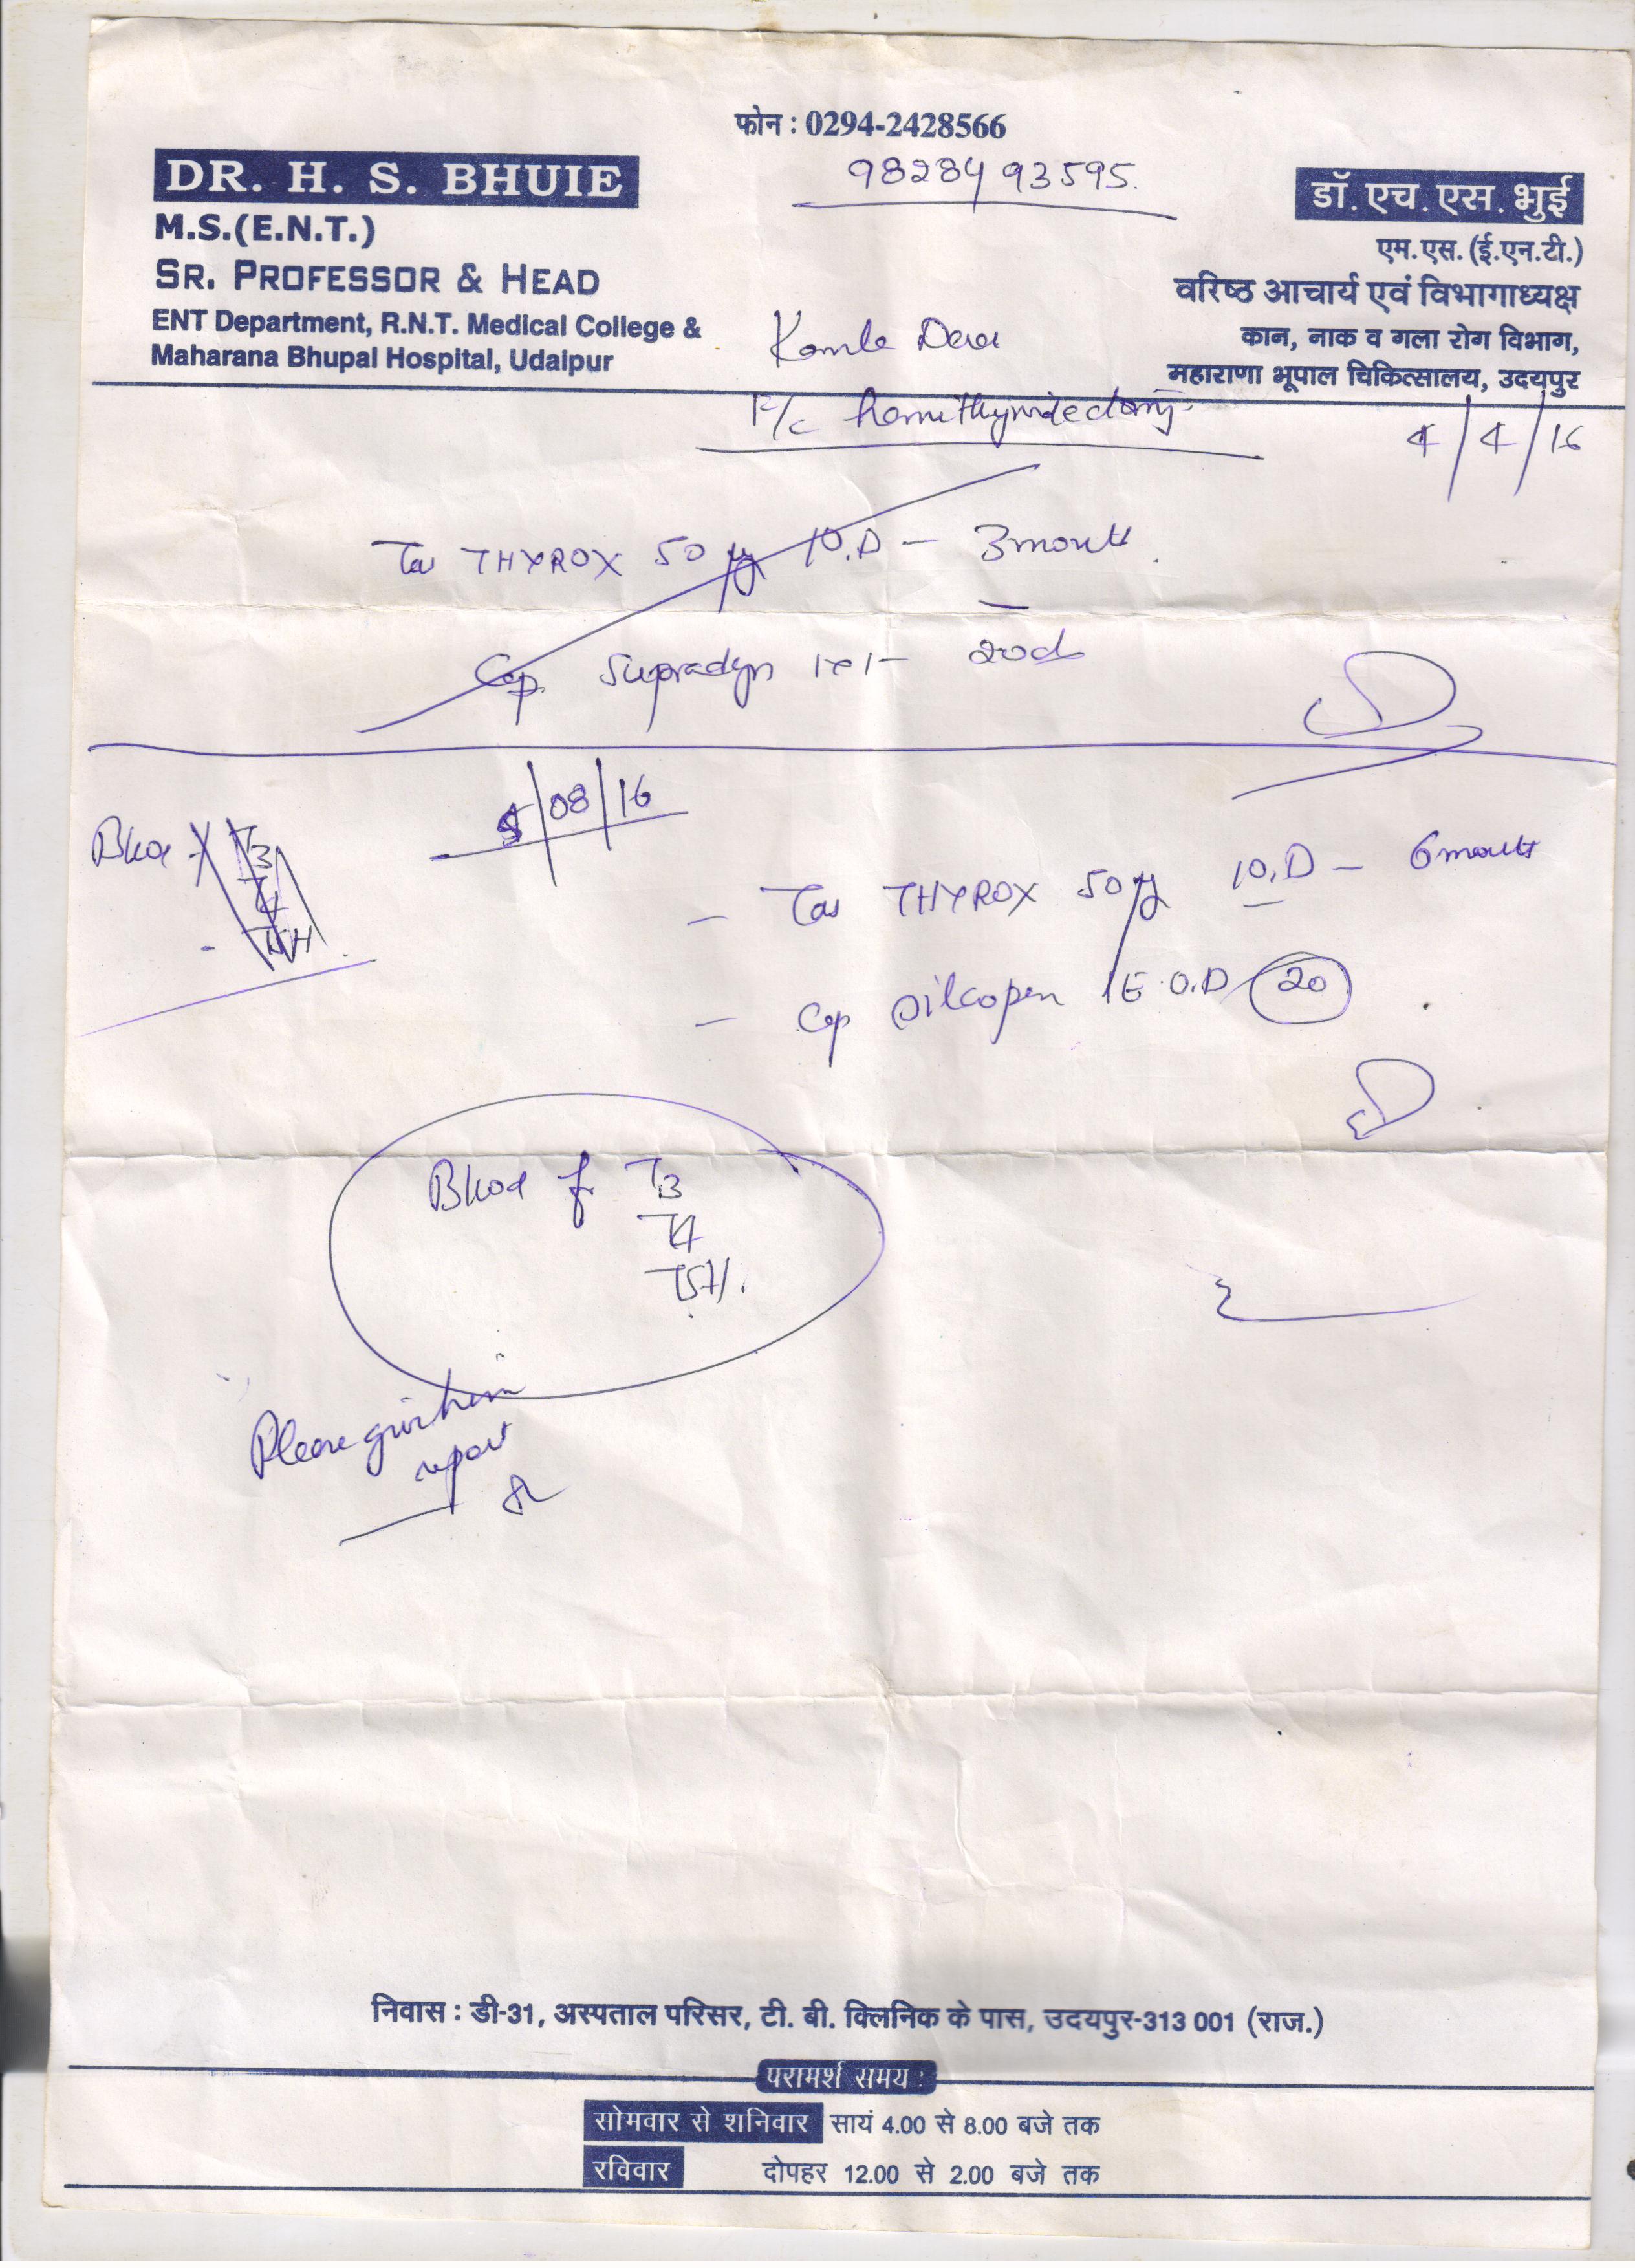 फोन : 0294-2428566
9828493595.
DR. H. S. BHUIE
M.S.(E.N.T.)
SR. PROFESSOR & HEAD
ENT Department, R.N.T. Medical College &
Maharana Bhupal Hospital, Udaipur
डॉ. एच. एस. भुई
एम. एस. (ई.एन.टी.)
वरिष्ठ आचार्य एवं विभागाध्यक्ष
कान, नाक व गला रोग विभाग,
महाराणा भूपाल चिकित्सालय, उदयपुर
Kamla
hemithyroidectomy
4/4/16
THYROX 50 µg 1 O.D – 3 month
Cap. Supradyn 1x1 – 20d
5/08/16
Blood
T3
T4
- TSH
- THYROX 50 µg 1 O.D – 6 month
- Cap 1 E.O.D 20
Blood f T3
T4
TSH.
Please give him
report
निवास : डी-31, अस्पताल परिसर, टी. बी. क्लिनिक के पास, उदयपुर-313 001 (राज.)
परामर्श समय :
सोमवार से शनिवार सायं 4.00 से 8.00 बजे तक
रविवार दोपहर 12.00 से 2.00 बजे तक